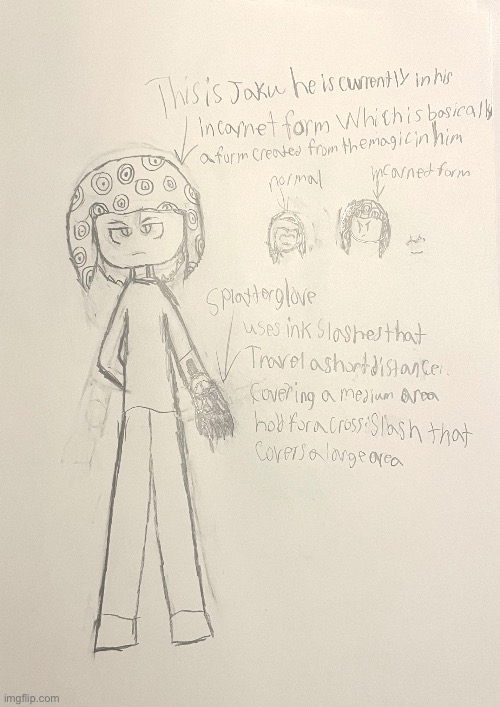 This is Jaku he is currently in his
Incarnet form Which is basically
a form created from the magic in him
normal
incarnet form
Splatter glove
uses ink slashes that
Travel a short distance.
Covering a medium area
hold for a cross slash that
Covers a large area
imgflip.com